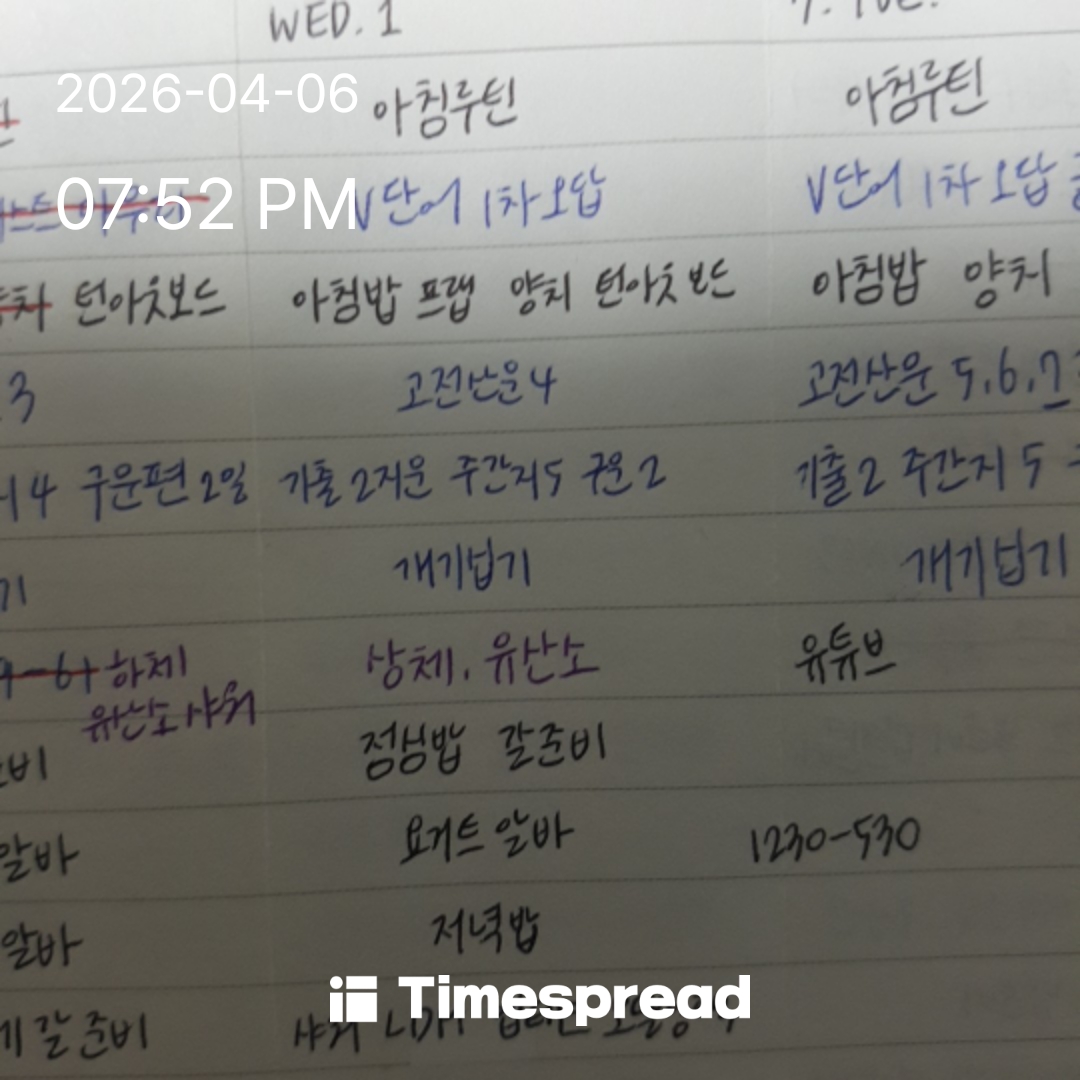 WED. 1
2026-04-06
아침루틴 아침루틴
07:52 PM
V단어 1차오답 V단어 1차오답
턴아웃보드 아침밥 프랩 양치 턴아웃보드 아침밥 양치
3 고전산운4 고전산운 5.6.7
4 구운편 2일 기출2지운 주간지5 구운2 기출2 주간지5
기 개기넙기 개기넙기
하체 상체. 유산소 유튜브
유산소 샤워
정심밥 갈준비
알바 요거트 알바 1230-530
알바 저녁밥
Timespread
갈준비 샤워